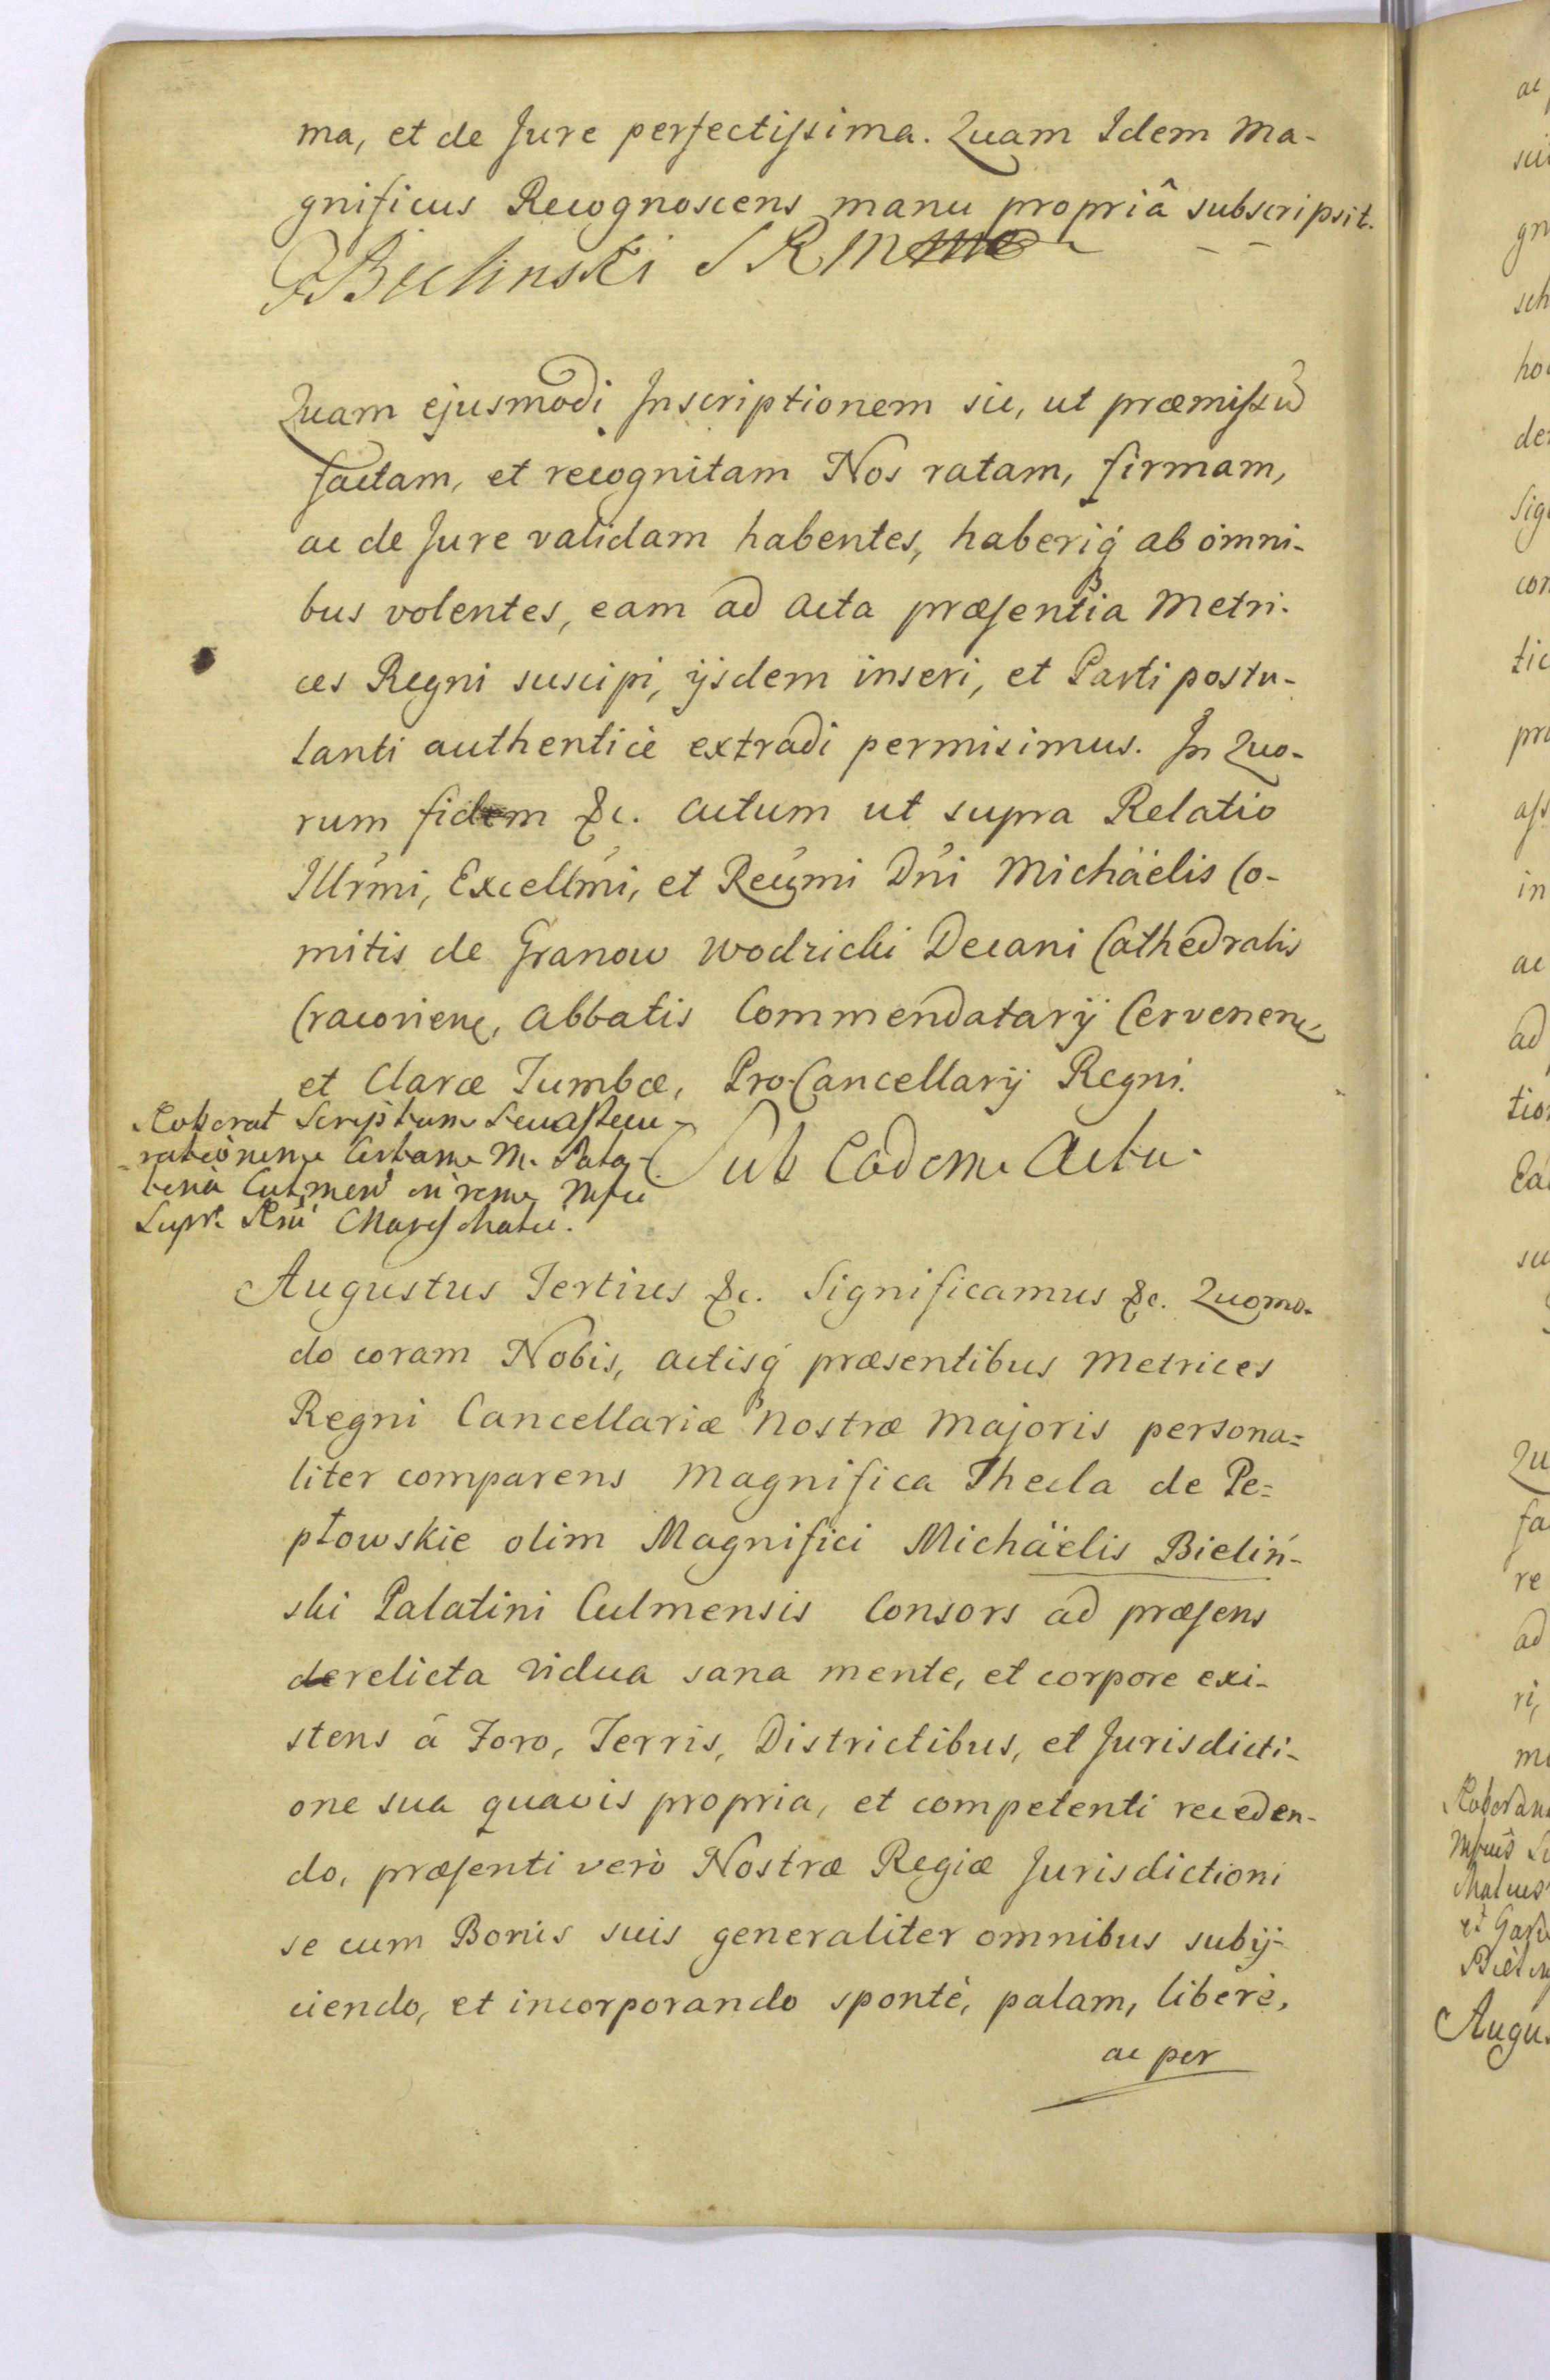 ma, et de Jure perfectissima. Quam Idem Ma-
gnificus Recognoscens manu propriâ subscripsit.
FBielinski
Quam ejusmodi Inscriptionem sic, ut præmissũ
factam, et recognitam Nos ratam, firmam,
ac de Jure validam habentes, haberiq́ ab omni-
bus volentes, eam ad Acta præsentia Metri-
ces Regni suscipi, ijsdem inseri, et Parti postu-
lanti authenticè extradi permisimus. In Quo-
rum fidem &c. Actum ut supra Relatio
Illr̃mi, Excellm̃i, et Reũmi Dñi Michäelis Co-
mitis de Granow Wodzicki Decani Cathedralis
Cracovien, Abbatis Commendatarij Cervenen,
et Claræ Tumbæ, Pro-Cancellarij Regni.
Roborat Scriptum
Sub Eadem Actu.
Augustus Tertius &c. Significamus &c. Quomo-
do coram Nobis, actisq́ præsentibus Metrices
Regni Cancellariæ Nostræ Majoris persona=
liter comparens Magnifica Thecla de Pe=
płowskie olim Magnifici Michäelis Bieliń-
ski Palatini Culmensis Consors ad præsens
derelicta Vidua sana mente, et corpore exi-
stens â Foro, Terris, Districtibus, et Jurisdicti-
one sua quavis propria, et competenti receden-
do, præsenti verò Nostræ Regiæ Jurisdictioni
se cum Bonis suis generaliter omnibus subij-
ciendo, et incorporando spontè, palam, liberè,
ac per